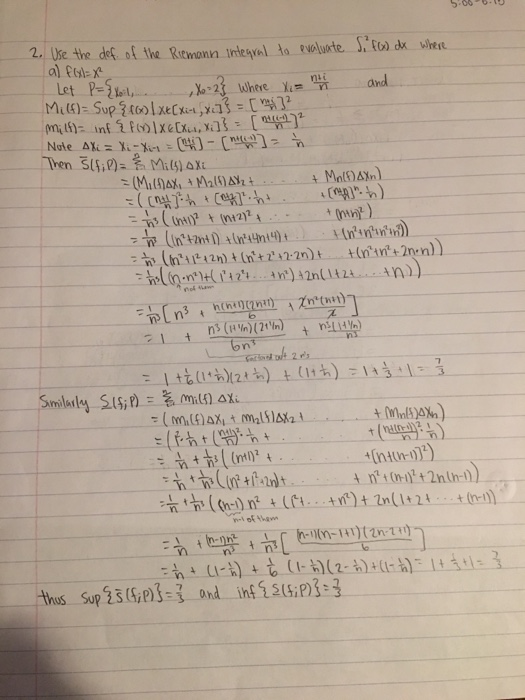 5:00-6:15
2. Use the def. of the Riemann integral to evaluate ∫₁² f(x) dx where
a) f(x)=x²
Let P={x₀=1, ,xₙ=2} where xᵢ= (n+i)/n and
Mᵢ(f)= Sup {f(x) | x∈[xᵢ₋₁, xᵢ]} = [(n+i)/n]²
mᵢ(f)= inf {f(x) | x∈[xᵢ₋₁, xᵢ]} = [(n+(i-1))/n]²
Note Δxᵢ = xᵢ-xᵢ₋₁ = [(n+i)/n] - [(n+(i-1))/n] = 1/n
Then S̄(f;P)= Σ Mᵢ(f) Δxᵢ
= (M₁(f)Δx₁ + M₂(f)Δx₂ + ... + Mₙ(f)Δxₙ)
= ([(n+1)/n]²·1/n + [(n+2)/n]²·1/n + ... + [(n+n)/n]²·1/n)
= 1/n³ ((n+1)² + (n+2)² + ... + (n+n)²)
= 1/n³ ((n²+2n+1) + (n²+4n+4) + ... + (n²+n²+n²+n²))
= 1/n³ ((n²+1²+2n) + (n²+2²+2·2n) + ... + (n²+n²+2n·n))
= 1/n³ ((n·n²)+(1²+2²+ ... +n²) + 2n(1+2+ ... +n))
n of them
= 1/n³ [n³ + n(n+1)(2n+1)/6 + 2n²(n+1)/2]
= 1 + n³(1+1/n)(2+1/n)/6n³ + n³(1+1/n)/n³
factored out 2 n's
= 1 + 1/6 (1+1/n)(2+1/n) + (1+1/n) = 1+1/3+1 = 7/3
Similarly S(f;P) = Σ mᵢ(f) Δxᵢ
= (m₁(f)Δx₁ + m₂(f)Δx₂ + ... + (mₙ(f)Δxₙ)
= (1²·1/n + ((n+1)/n)²·1/n + ... + ((n+(n-1))/n)²·1/n)
= 1/n + 1/n³ ((n+1)² + ... +(n+(n-1)²)
= 1/n + 1/n³ ((n²+1²+2n)+ ... + n²+(n-1)²+2n(n-1))
= 1/n + 1/n³ ((n-1)n² + (1²+...+n²) + 2n(1+2+ ... +(n-1))
n-1 of them
= 1/n + (n-1)n²/n³ + 1/n³ [(n-1)(n-1+1)(2n-2+1)/6]
= 1/n + (1-1/n) + 1/6 (1-1/n)(2-1/n)+(1-1/n) = 1+1/3+1 = 7/3
thus Sup{S̄(f;P)}=7/3 and inf{S(f;P)}=7/3